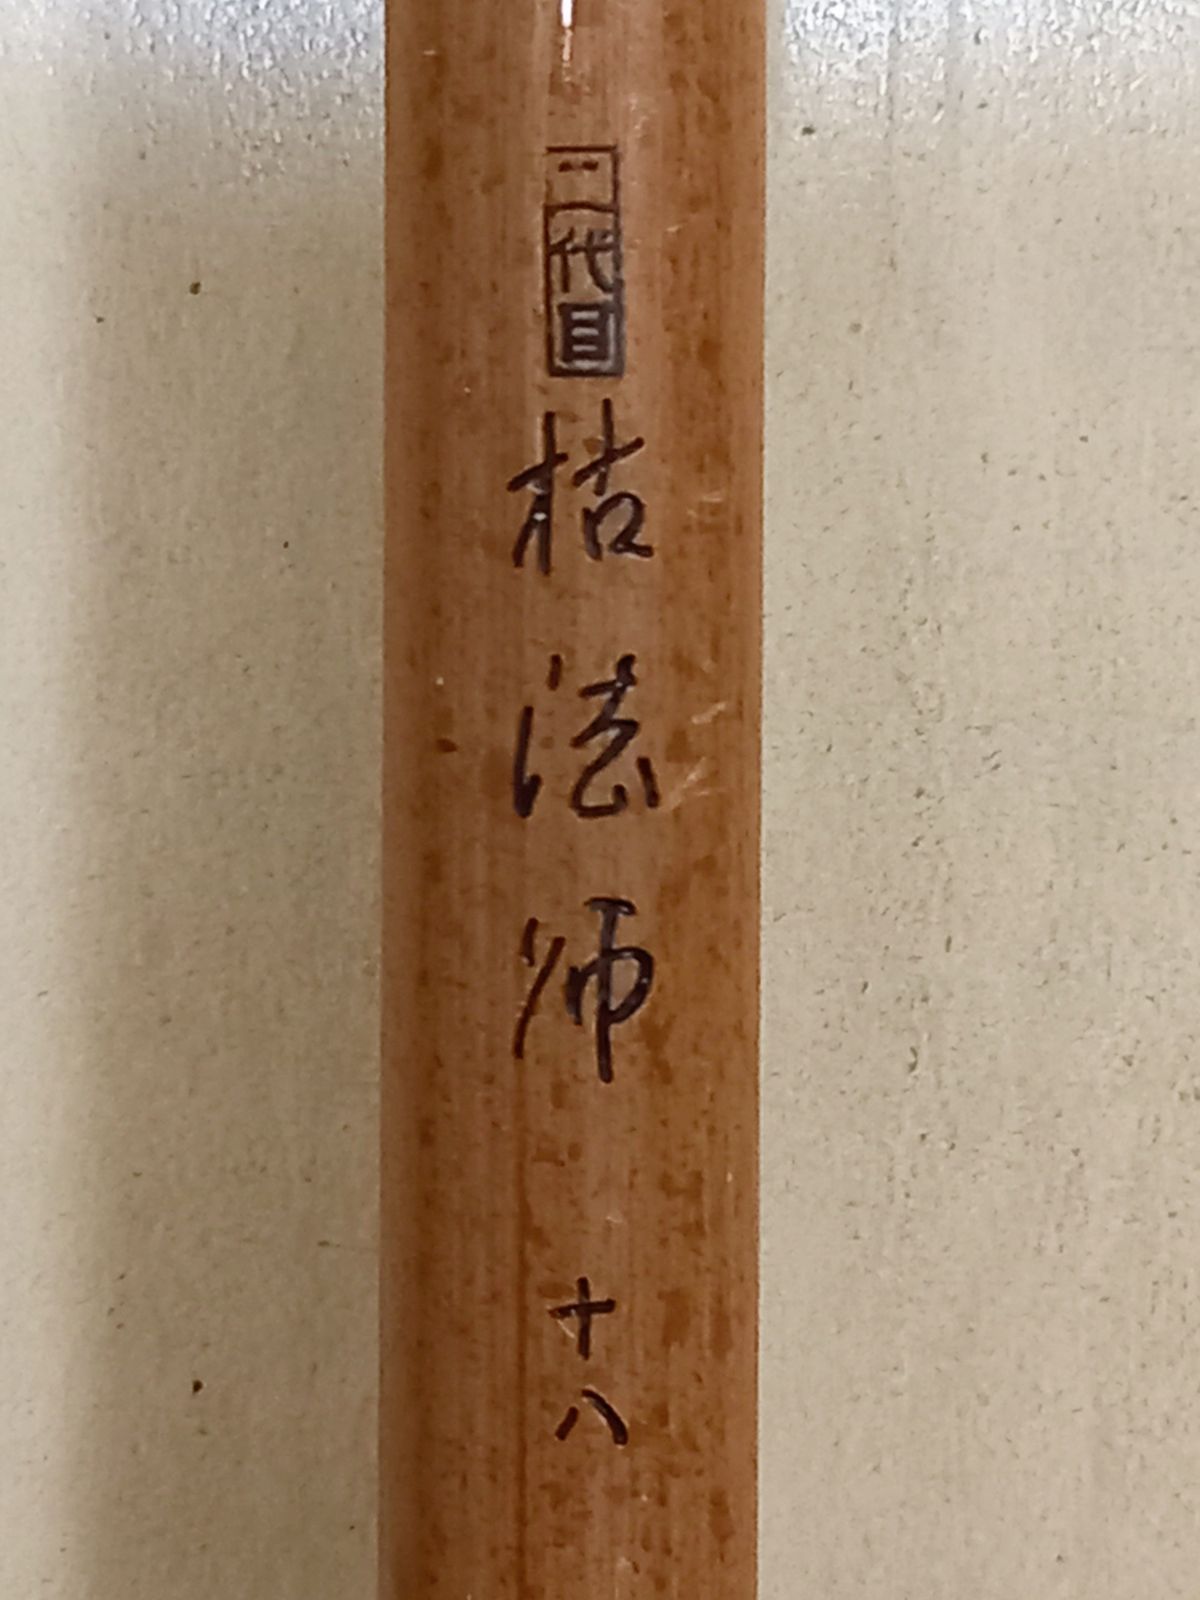 二代目
枯法師
十八